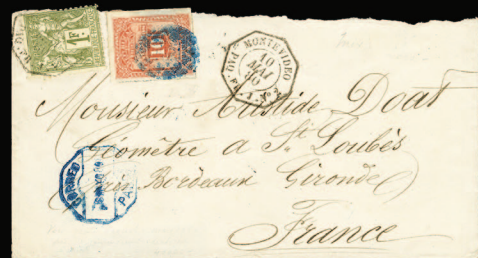 1F
10
MONTEVIDEO
10
MAI
80
PAQ. FR. J. Nº 2
Monsieur Aristide Doat
Géomètre a St. Loubès
près Bordeaux Gironde
France
CORREO